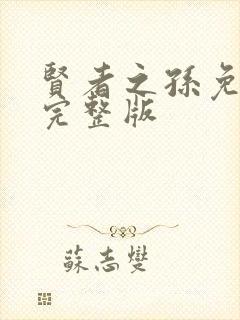 賢者之孫免
完整版
蘇志燮